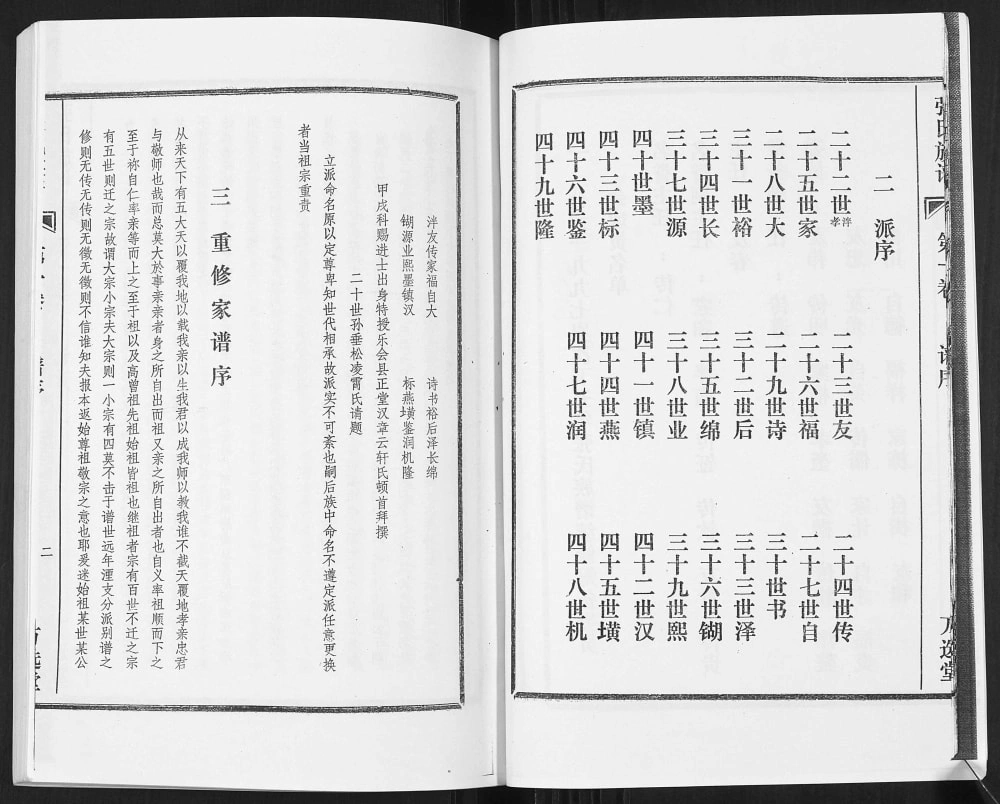 张氏族谱
二 派序
二十二世泮孝
二十三世友
二十四世传
二十五世家
二十六世福
二十七世自
二十八世大
二十九世诗
三十世书
三十一世裕
三十二世后
三十三世泽
三十四世长
三十五世绵
三十六世铘
三十七世源
三十八世业
三十九世熙
四十世墨
四十一世镇
四十二世汉
四十三世标
四十四世燕
四十五世璜
四十六世鉴
四十七世润
四十八世机
四十九世隆
泮友传家福自大 诗书裕后泽长绵
铘源业熙墨镇汉 标燕璜鉴润机隆
甲戌科赐进士出身特授乐会县正堂汉章云轩氏顿首拜撰
二十世孙垂松凌霄氏请题
立派命名原以定尊卑知世代相承故派实不可紊也嗣后族中命名不遵定派任意更换
者当祖宗重责
三 重修家谱序
从来天下有五大天以覆我地以载我亲以生我君以成我师以教我谁不戴天覆地孝亲忠君
与敬师也哉而总莫大於事亲亲者身之所自出而祖又亲之所自出者也自义率祖顺而下之
至于祢自仁率亲等而上之至于祖以及高曾祖先祖始祖皆祖也继祖者宗有百世不迁之宗
有五世则迁之宗故谓大宗小宗夫大宗则一小宗有四莫不击于谱世远年湮支分派别谱之
修则无传无传则无徵无徵则不信谁知夫报本返始尊祖敬宗之意也耶爰迷始祖某世某公
二